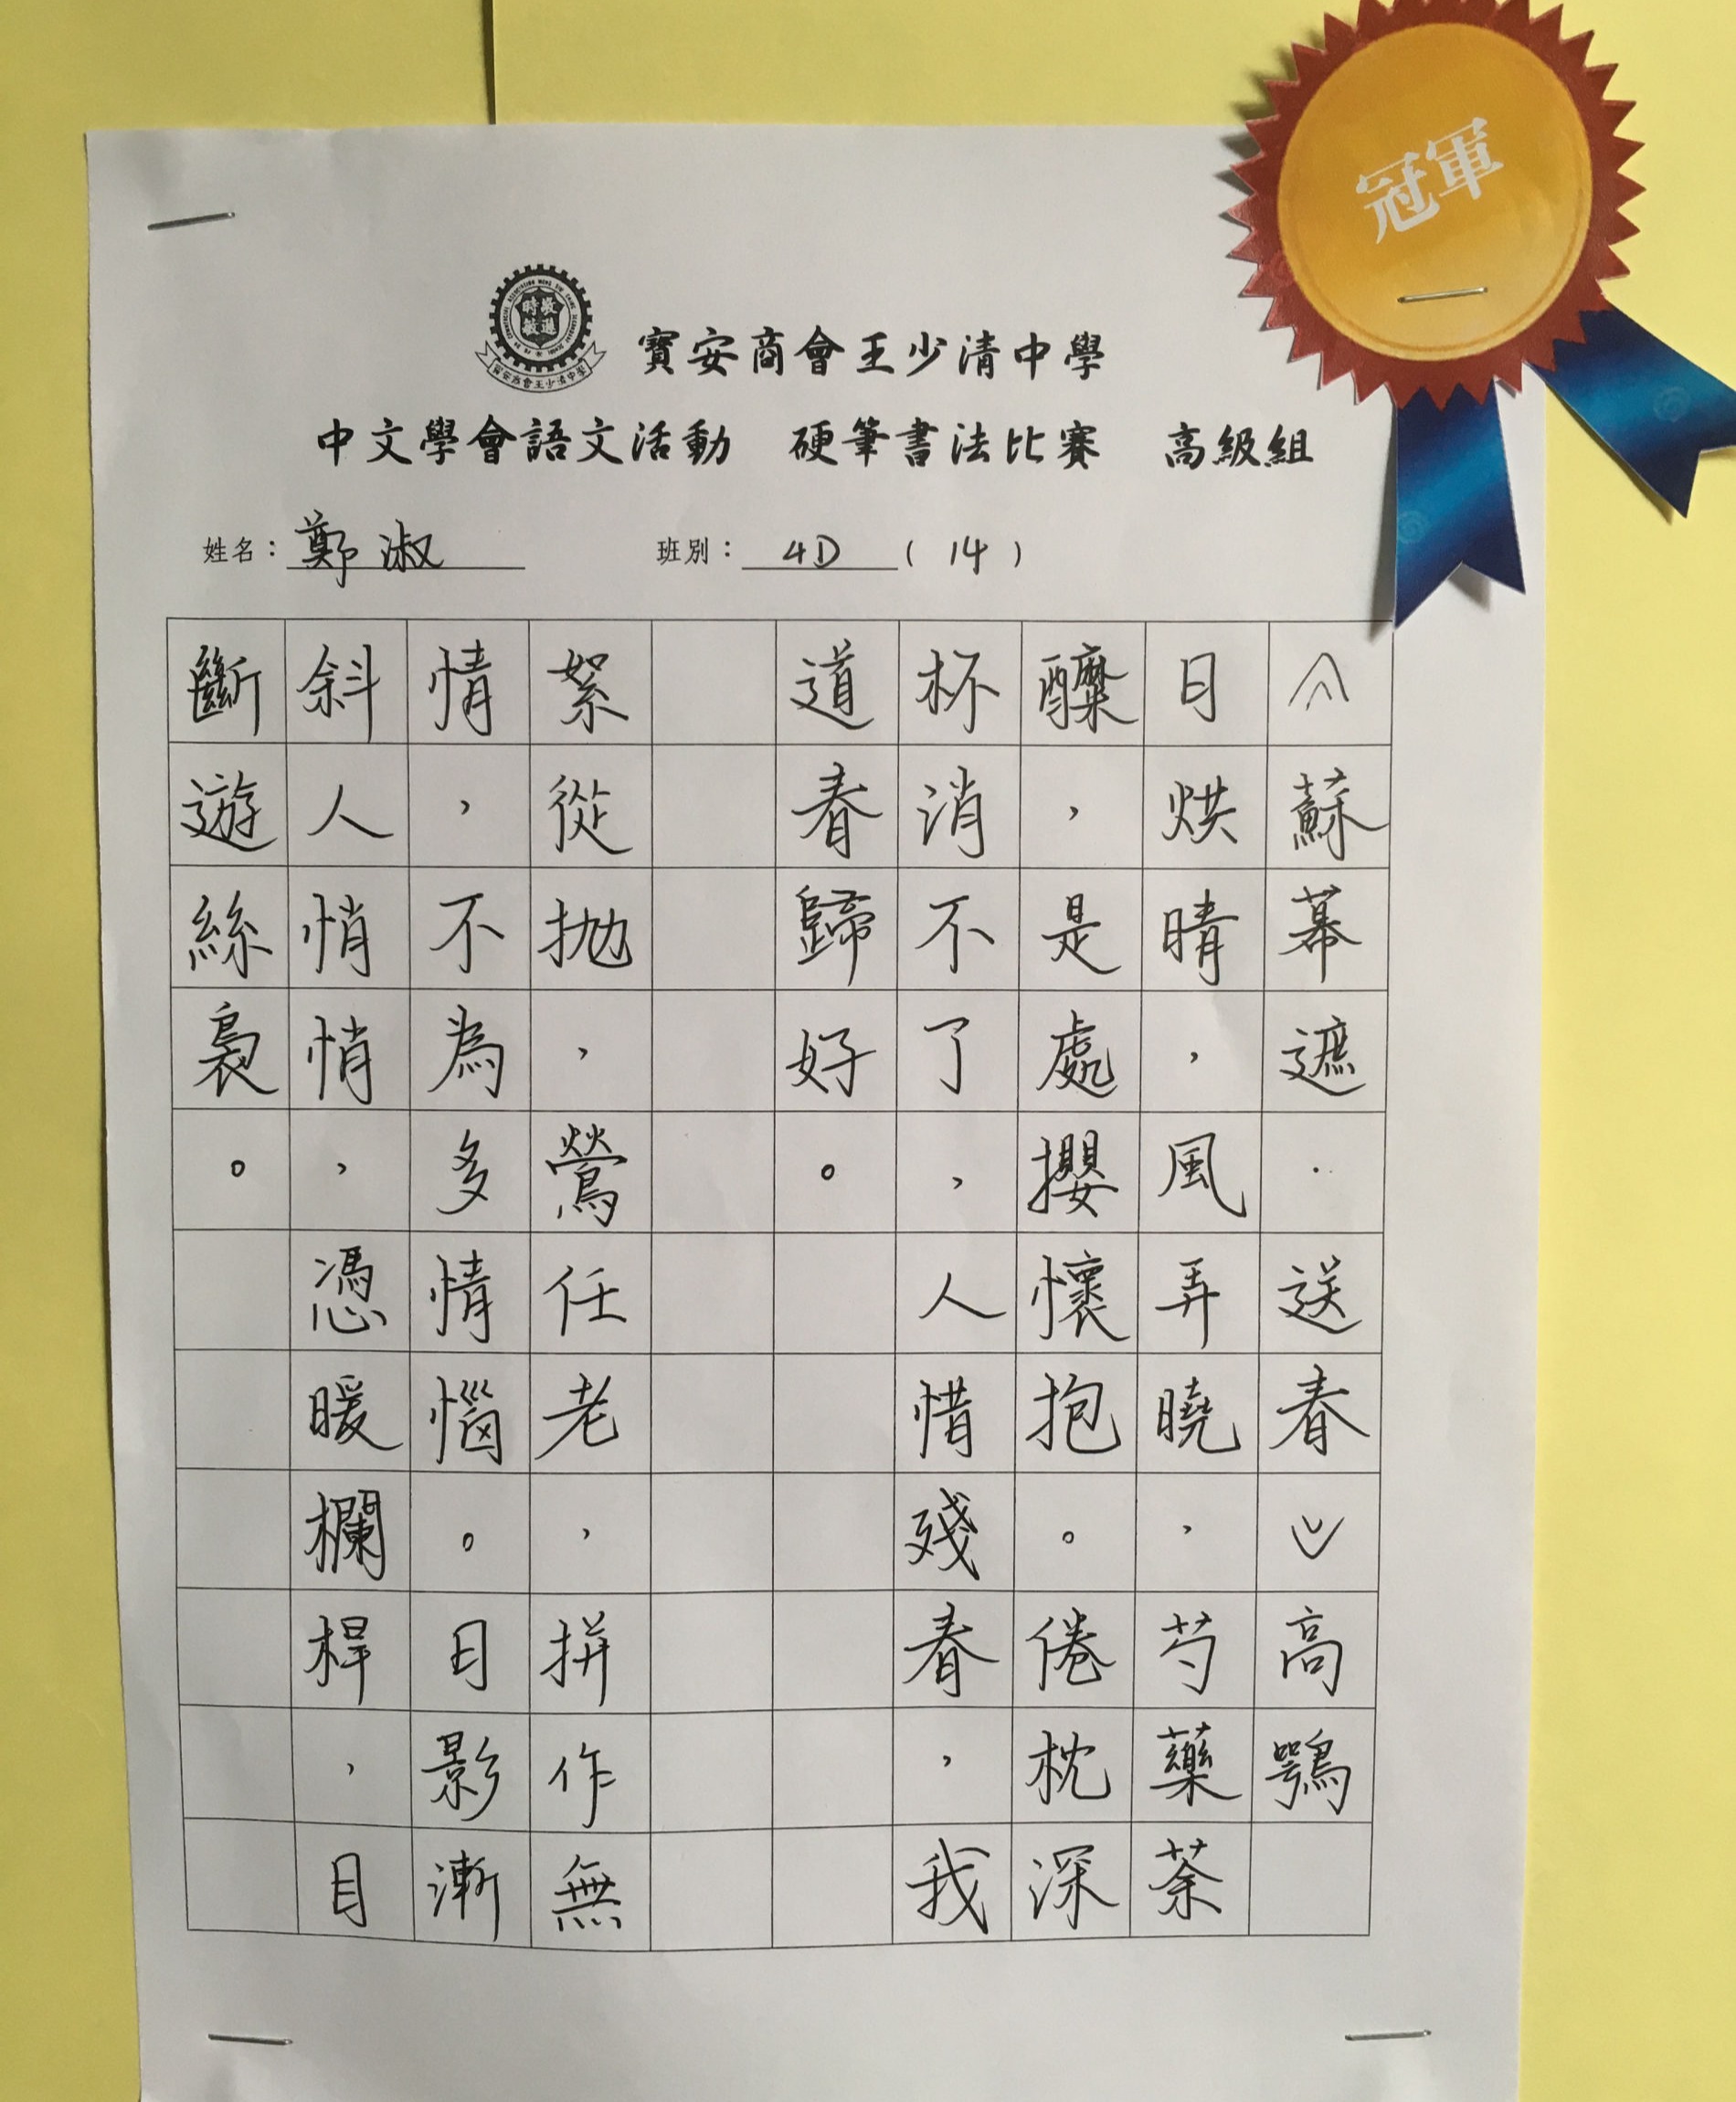 冠軍
寶安商會王少清中學
寶安商會王少清中學
中文學會語文活動 硬筆書法比賽 高級組
姓名：鄭淑 班別：4D(14)
︿蘇幕遮·送春﹀高鶚
日烘晴，風弄曉，芍藥荼
醿，是處攖懷抱。倦枕深
杯消不了，人惜殘春，我
道春歸好。
絮從拋，鶯任老，拼作無
情，不為多情惱。日影漸
斜人悄悄，憑暖欄桿，目
斷遊絲裊。